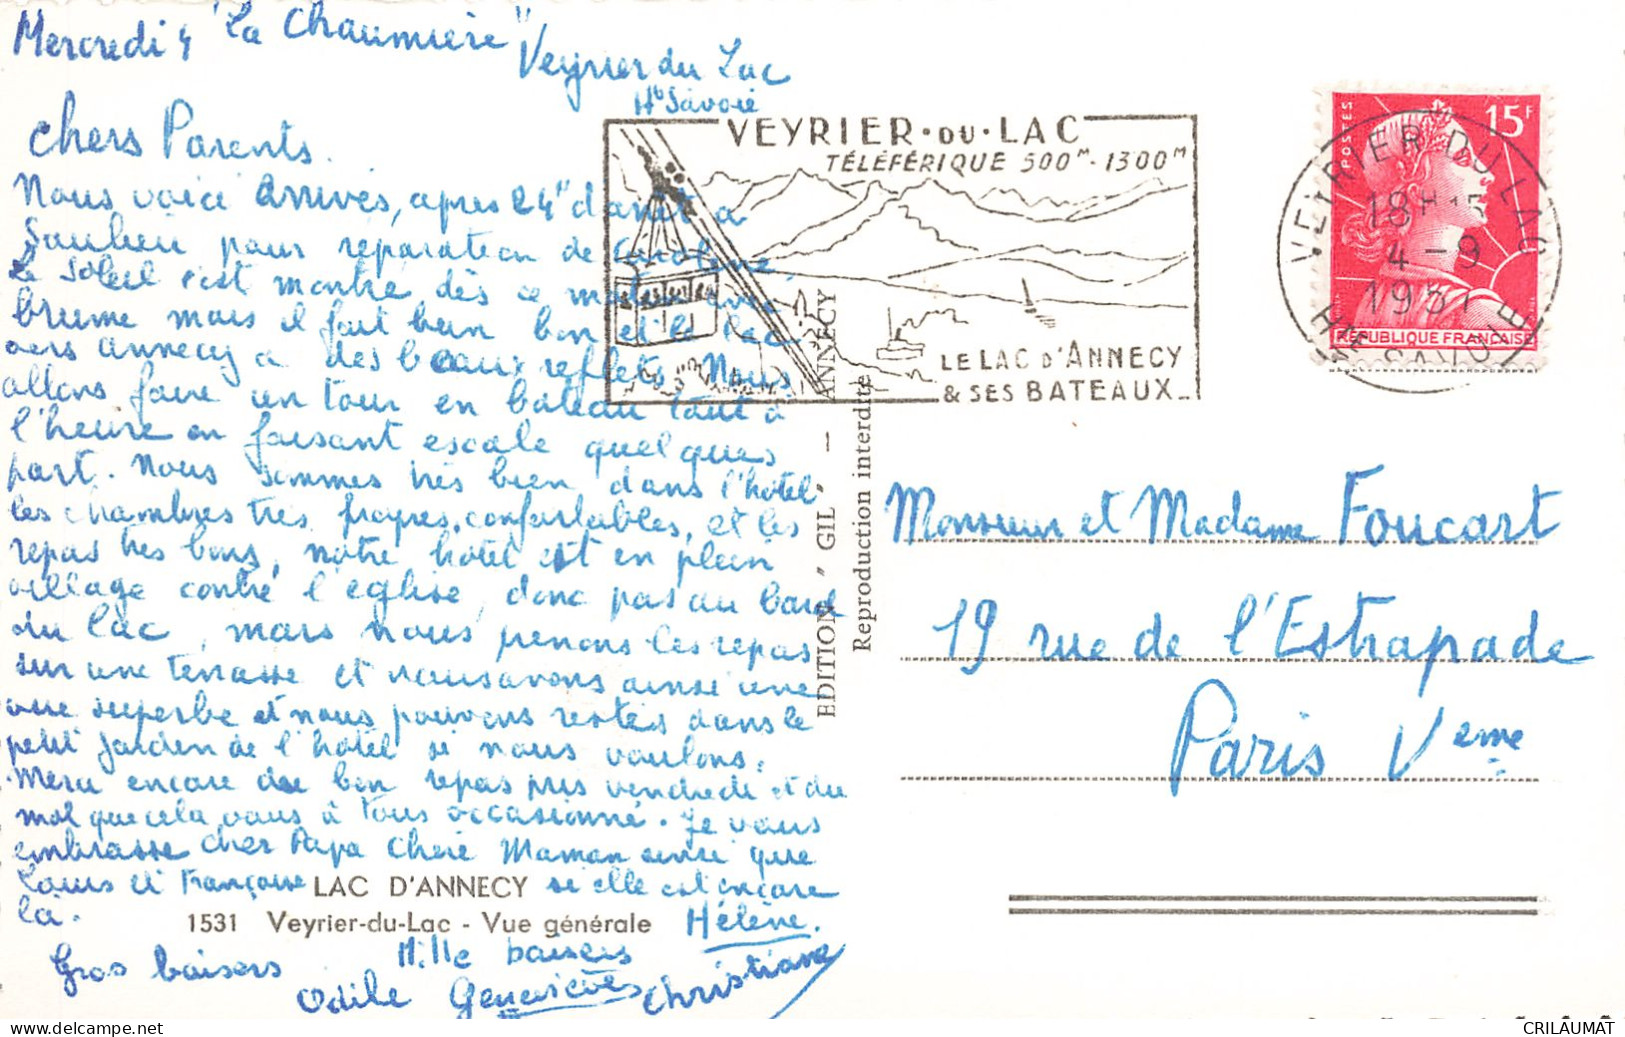 Mercredi 4 "La Chaumière"
Veyrier du Lac
Hte Savoie
Chers Parents.
Nous voici arrivés, après 24h d'arrêt à
Saulieu pour réparation de Caroline,
Le soleil s'est montré dès ce matin avec
brume mais il fait bien bon et le lac
vers Annecy a des beaux reflets. Nous
allons faire un tour en bateau tout à
l'heure en faisant escale quelques
part. Nous sommes très bien dans l'hôtel
les chambres très propres, confortables, et les
repas très bons, notre hôtel est en plein
village contre l'église, donc pas au bord
du lac, mais nous prenons les repas
sur une terrasse et nous avons ainsi une
vue superbe et nous pouvons rester dans le
petit jardin de l'hôtel si nous voulons.
Merci encore du bon repas pris vendredi et du
mal que cela vous à tous occasionné. Je vous
embrasse cher Papa Chère Maman ainsi que
Louis et Françoise si elle est encore
là.
Hélène.
Gros baisers
Mille baisers
Odile Geneviève Christiane
LAC D'ANNECY
1531 Veyrier-du-Lac - Vue générale
EDITION "GIL" - ANNECY
Reproduction interdite
VEYRIER·DU·LAC
TÉLÉFÉRIQUE 500M-1300M
LE LAC D'ANNECY
& SES BATEAUX
POSTES
15F
RÉPUBLIQUE FRANÇAISE
VEYRIER DU LAC
18H15
4-9
1957
HTE SAVOIE
Monsieur et Madame Foucart
19 rue de l'Estrapade
Paris Veme
CRILAUMAT